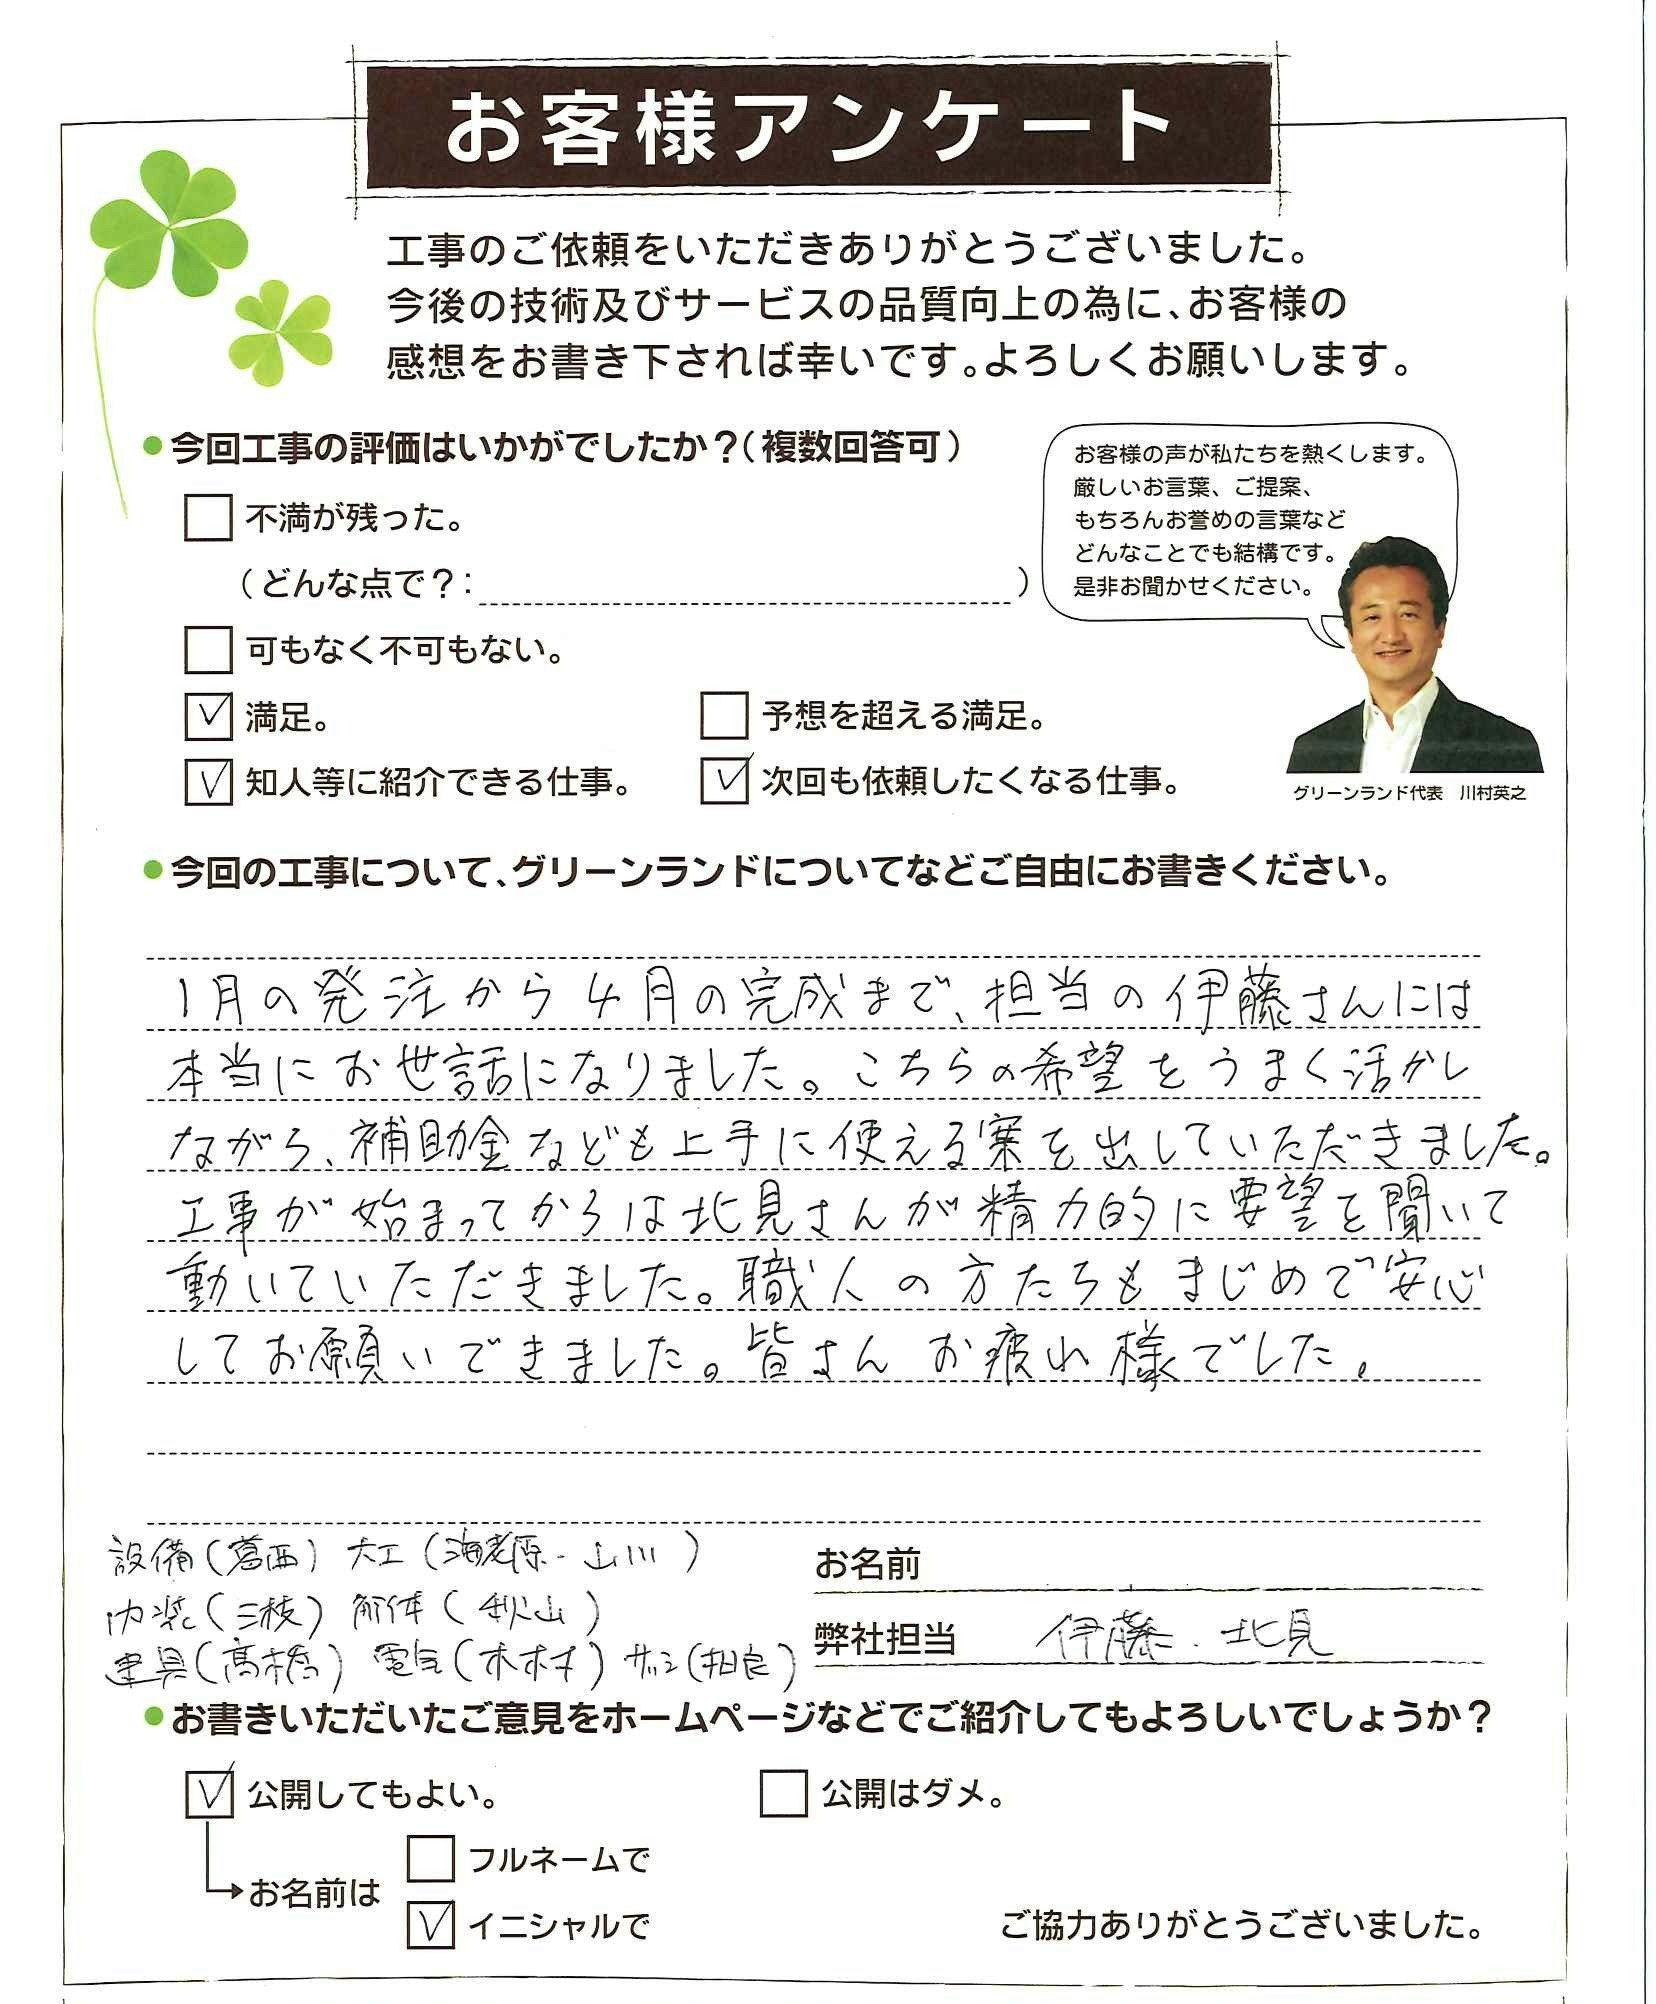 お客様アンケート
工事のご依頼をいただきありがとうございました。
今後の技術及びサービスの品質向上の為に、お客様の
感想をお書き下されば幸いです。よろしくお願いします。
●今回工事の評価はいかがでしたか？（複数回答可）
お客様の声が私たちを熱くします。
厳しいお言葉、ご提案、
もちろんお誉めの言葉など
どんなことでも結構です。
是非お聞かせください。
不満が残った。
（どんな点で？： ）
可もなく不可もない。
満足。 予想を超える満足。
知人等に紹介できる仕事。 次回も依頼したくなる仕事。
グリーンランド代表 川村英之
●今回の工事について、グリーンランドについてなどご自由にお書きください。
1月の発注から4月の完成まで、担当の伊藤さんには
本当にお世話になりました。こちらの希望をうまく活かし
ながら、補助金なども上手に使える案を出していただきました。
工事が始まってからは北見さんが精力的に要望を聞いて
動いていただきました。職人の方たちもまじめで安心
してお願いできました。皆さんお疲れ様でした。
設備（葛西） 大工（海老原・山川）
内装（三枝） 解体（秋山）
建具（髙橋） 電気（木村） サッシ（相良）
お名前
弊社担当 伊藤・北見
●お書きいただいたご意見をホームページなどでご紹介してもよろしいでしょうか？
公開してもよい。 公開はダメ。
お名前は
フルネームで
イニシャルで
ご協力ありがとうございました。